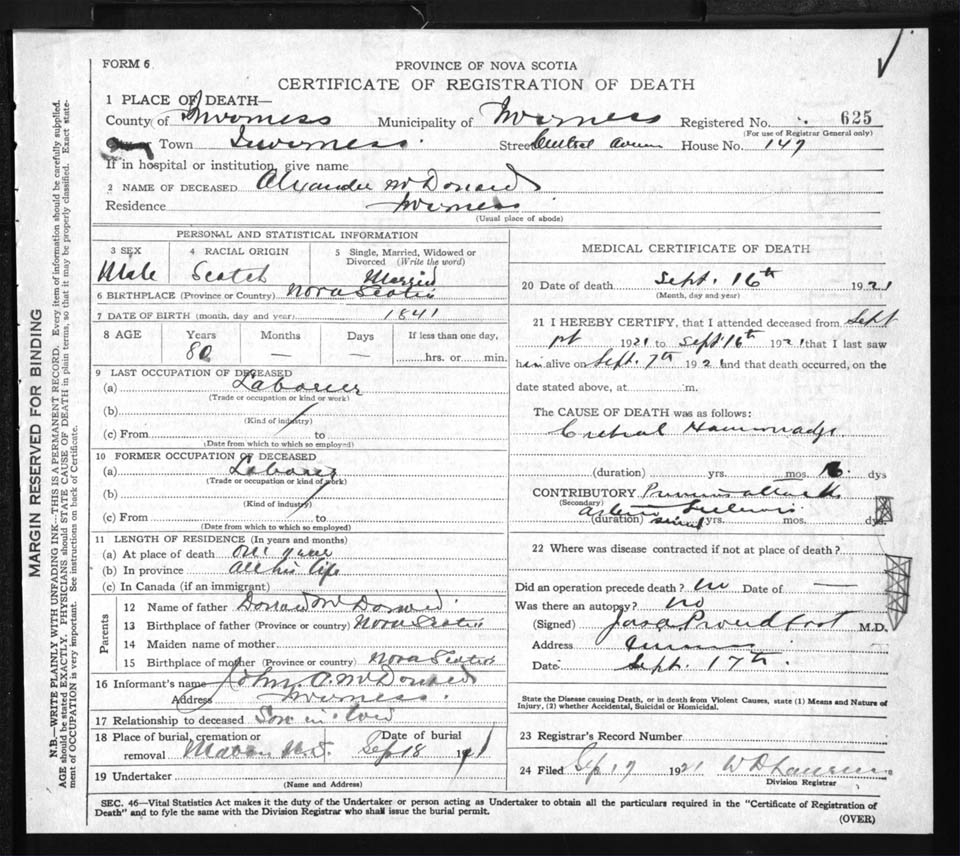 FORM 6
PROVINCE OF NOVA SCOTIA
CERTIFICATE OF REGISTRATION OF DEATH
1 PLACE OF DEATH—
County of Inverness Municipality of Inverness Registered No. 625
(For use of Registrar General only)
Town Inverness. Street Central Avenue House No. 147
If in hospital or institution, give name
2 NAME OF DECEASED Alexander McDonald
Residence Inverness
(Usual place of abode)
PERSONAL AND STATISTICAL INFORMATION
3 SEX Male
4 RACIAL ORIGIN Scotch
5 Single, Married, Widowed or Divorced (Write the word) Married
6 BIRTHPLACE (Province or Country) Nova Scotia
7 DATE OF BIRTH (month, day and year) 1841
8 AGE Years 80 Months — Days — If less than one day, hrs. or min.
9 LAST OCCUPATION OF DECEASED
(a) Laborer
(Trade or occupation or kind or work)
(b)
(Kind of industry)
(c) From to
(Date from which to which so employed)
10 FORMER OCCUPATION OF DECEASED
(a) Laborer
(Trade or occupation or kind of work)
(b)
(Kind of industry)
(c) From to
(Date from which to which so employed)
11 LENGTH OF RESIDENCE (In years and months)
(a) At place of death one year
(b) In province all his life
(c) In Canada (if an immigrant)
Parents
12 Name of father Donald McDonald
13 Birthplace of father (Province or country) Nova Scotia
14 Maiden name of mother
15 Birthplace of mother (Province or country) Nova Scotia
16 Informant's name John A. McDonald
Address Inverness
17 Relationship to deceased Son in law
18 Place of burial, cremation or removal Mabou N.S. Date of burial Sep 18 1921
19 Undertaker
(Name and Address)
MEDICAL CERTIFICATE OF DEATH
20 Date of death Sept. 16th 1921
(Month, day and year)
21 I HEREBY CERTIFY, that I attended deceased from Sept
1st 1921 to Sept 16th 1921 that I last saw
him alive on Sept. 7th 1921 and that death occurred, on the
date stated above, at m.
The CAUSE OF DEATH was as follows:
(duration) yrs. mos. 16 dys
CONTRIBUTORY Previous attacks
(Secondary)
(duration) yrs. mos. dys
22 Where was disease contracted if not at place of death?
Did an operation precede death? no Date of —
Was there an autopsy? no
(Signed) Proudfoot M.D.
Address
Date Sept. 17th.
State the Disease causing Death, or in death from Violent Causes, state (1) Means and Nature of
Injury, (2) whether Accidental, Suicidal or Homicidal.
23 Registrar's Record Number
24 Filed Sep 19 1921 W D Lawrence
Division Registrar
SEC. 46—Vital Statistics Act makes it the duty of the Undertaker or person acting as Undertaker to obtain all the particulars required in the "Certificate of Registration of
Death" and to fyle the same with the Division Registrar who shall issue the burial permit.
(OVER)
MARGIN RESERVED FOR BINDING
N.B.—WRITE PLAINLY WITH UNFADING INK—THIS IS A PERMANENT RECORD. Every item of information should be carefully supplied.
AGE should be stated EXACTLY. PHYSICIANS should STATE CAUSE OF DEATH in plain terms, so that it may be properly classified. Exact state-
ment of OCCUPATION is very important. See instructions on back of Certificate.